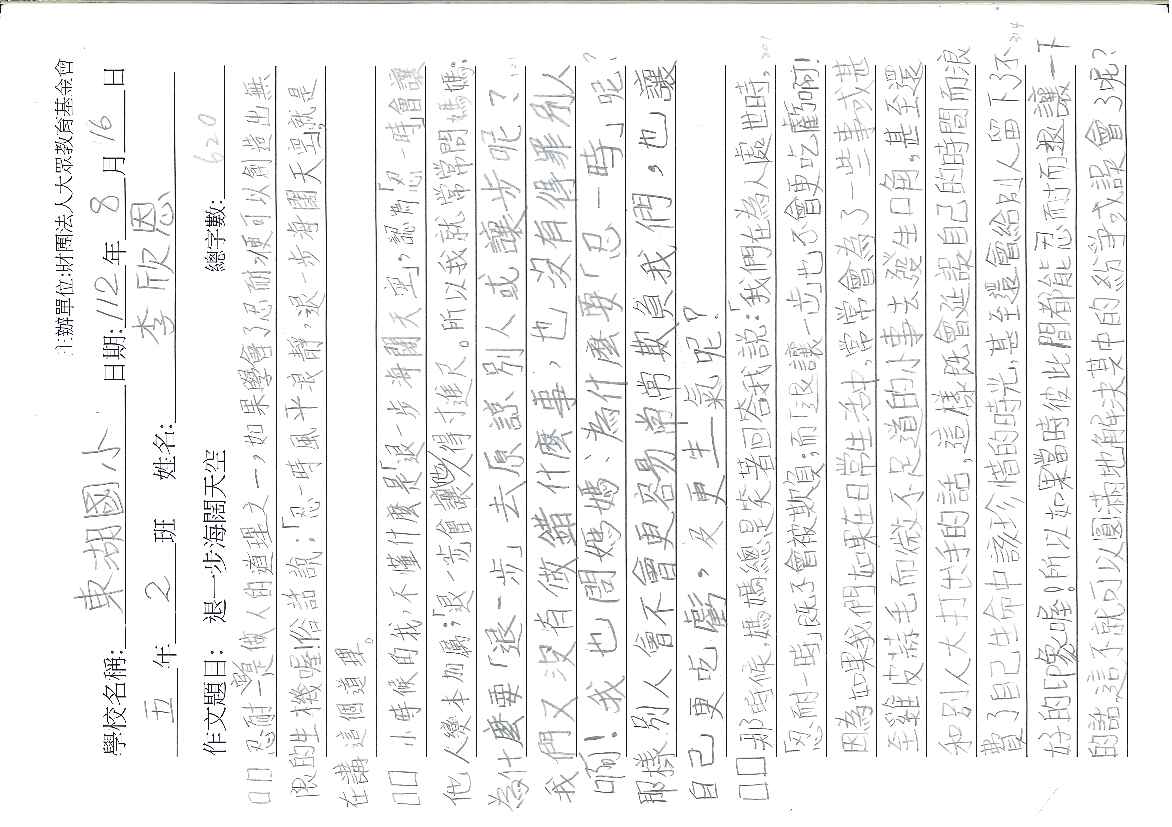 主辦單位:財團法人大眾教育基金會
學校名稱:東湖國小 日期:112年8月16日
五年2班 姓名:李欣恩
作文題目:退一步海闊天空 總字數:620
□□忍耐是做人的道理之一,如果學會了忍耐,便可以創造出無
限的生機喔!俗諺說:「忍一時風平浪靜,退一步海闊天空」就是
在講這個道理。
□□小時候的我,不懂什麼是「退一步海闊天空」,認為「忍一時」會讓
他人變本加厲;「退一步」會讓人得寸進尺。所以我就常常問媽媽:
為什麼要「退一步」去原諒別人或讓步呢?121
我們又沒有做錯什麼事,也沒有得罪別人
啊!我也問媽媽:為什麼要「忍一時」呢?
那樣別人會不會更容易常常欺負我們,也讓
自己更吃虧,及更生氣呢?
□□那時候,媽媽總是笑著回答我說:「我們在為人處世時,201
「忍耐一時」既不會被欺負;而「退讓一步」也不會更吃虧啊!
因為如果我們如果在日常生活中,常常會為了一些事或甚
至雞皮蒜毛而微不足道的小事去發生口角,甚至還
和別人大打出手的話,這樣既會延誤自己的時間而浪
費了自己生命中該珍惜的時光,甚至還會給別人留下了不314
好的印象喔!所以如果當時彼此間都能忍耐而退讓一下
的話,這不就可以圓滿地解決其中的紛爭或誤會了呢?